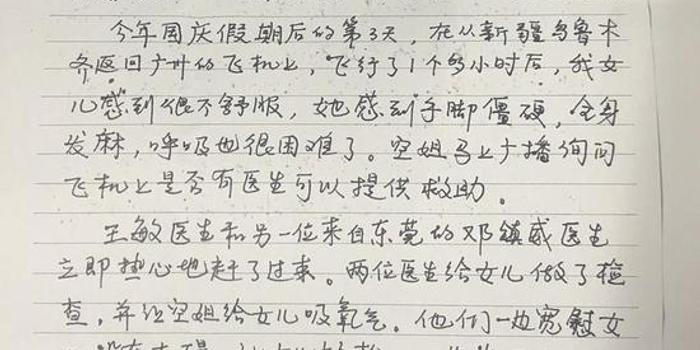 今年国庆假期后的第3天，在从新疆乌鲁木
齐返回广州的飞机上，飞行了1个多小时后，我女
儿感到很不舒服，她感到手脚僵硬，全身
发麻，呼吸也很困难了。空姐马上广播询问
飞机上是否有医生可以提供救助。
王敏医生和另一位来自东莞的邓镇威医生
立即热心地赶了过来。两位医生给女儿做了检
查，并让空姐给女儿吸氧气。他们一边宽慰女